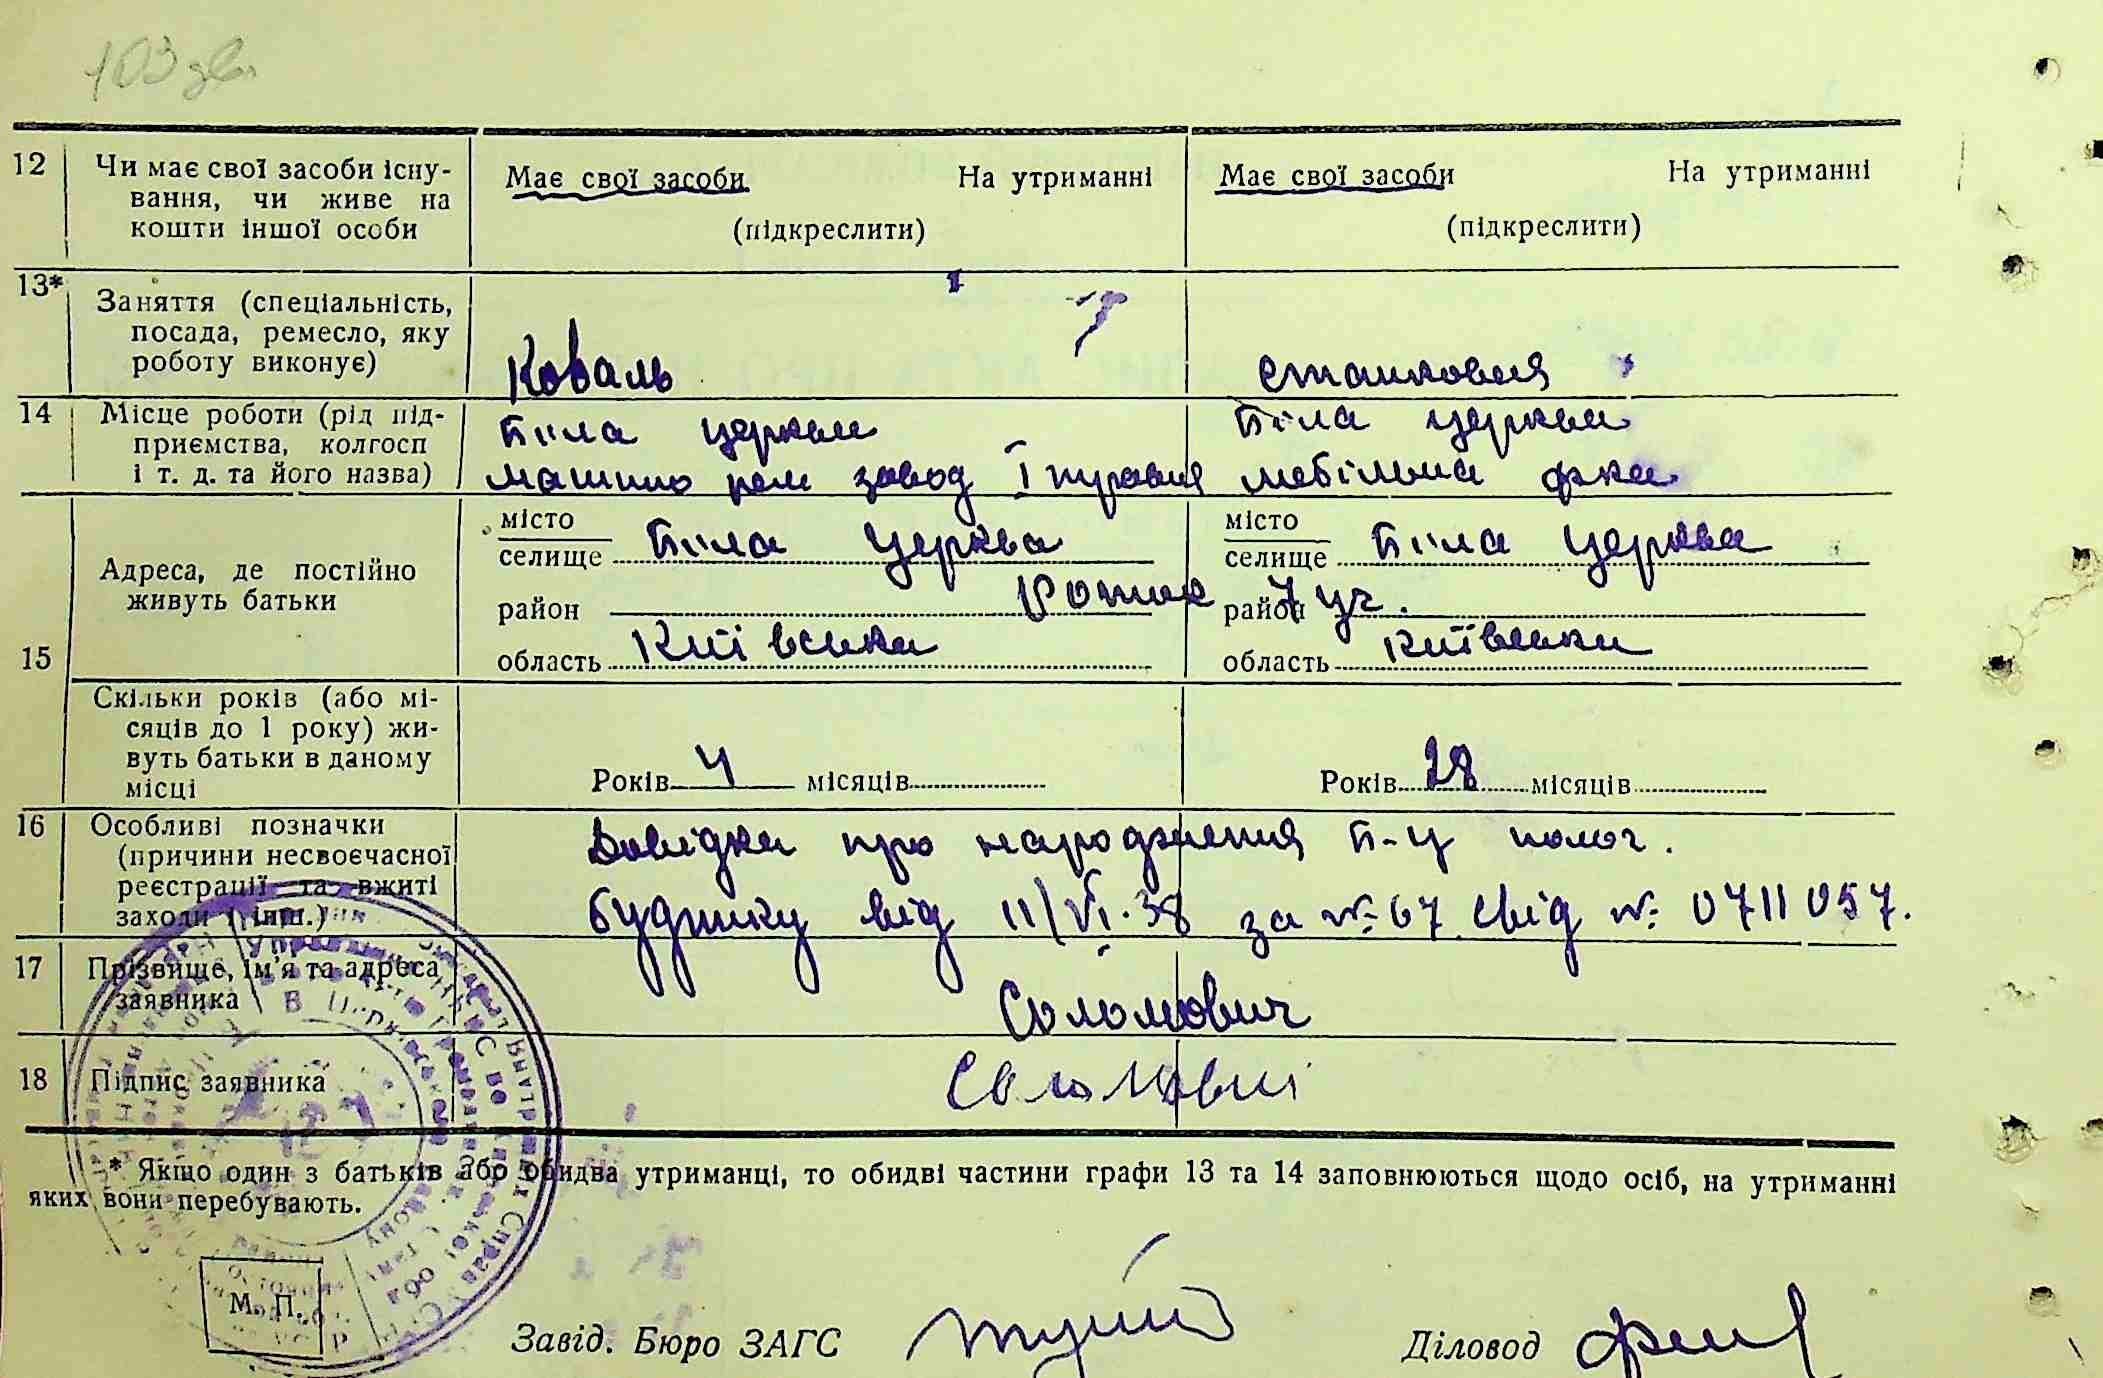 103 зв
12 Чи має свої засоби існу- Має свої засоби На утриманні Має свої засоби На утриманні
вання, чи живе на
кошти іншої особи (підкреслити) (підкреслити)
13* Заняття (спеціальність,
посада, ремесло, яку
роботу виконує) Коваль
14 Місце роботи (рід під- Біла церква Біла церква
приємства, колгосп
і т. д. та його назва) машино рем завод мебільна ф-ка
15 Адреса, де постійно
живуть батьки
місто Біла Церква місто Біла Церква
селище селище
район район 7 уч.
область Київська область Київська
Скільки років (або мі-
сяців до 1 року) жи-
вуть батьки в даному
місці Років 4 місяців Років 28 місяців
16 Особливі позначки Довідка про народження Б-Ц полог.
(причини несвоєчасної
реєстрації та вжиті будинку від 11/VI.38 за №67 свід №: 0711057.
заходи і інш.)
17 Прізвище, ім'я та адреса
заявника Соломович
18 Підпис заявника
* Якщо один з батьків або обидва утриманці, то обидві частини графи 13 та 14 заповнюються щодо осіб, на утриманні
яких вони перебувають.
М. П.
Завід. Бюро ЗАГС Діловод